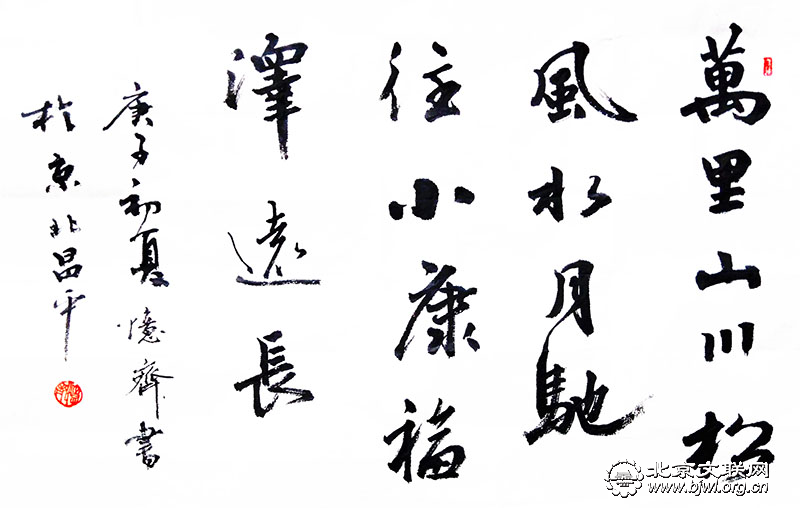 萬里山川松
風水月馳
往小康福
澤遠長
庚子初夏憶齊書
於京北昌平
北京文联网
www.bjwl.org.cn